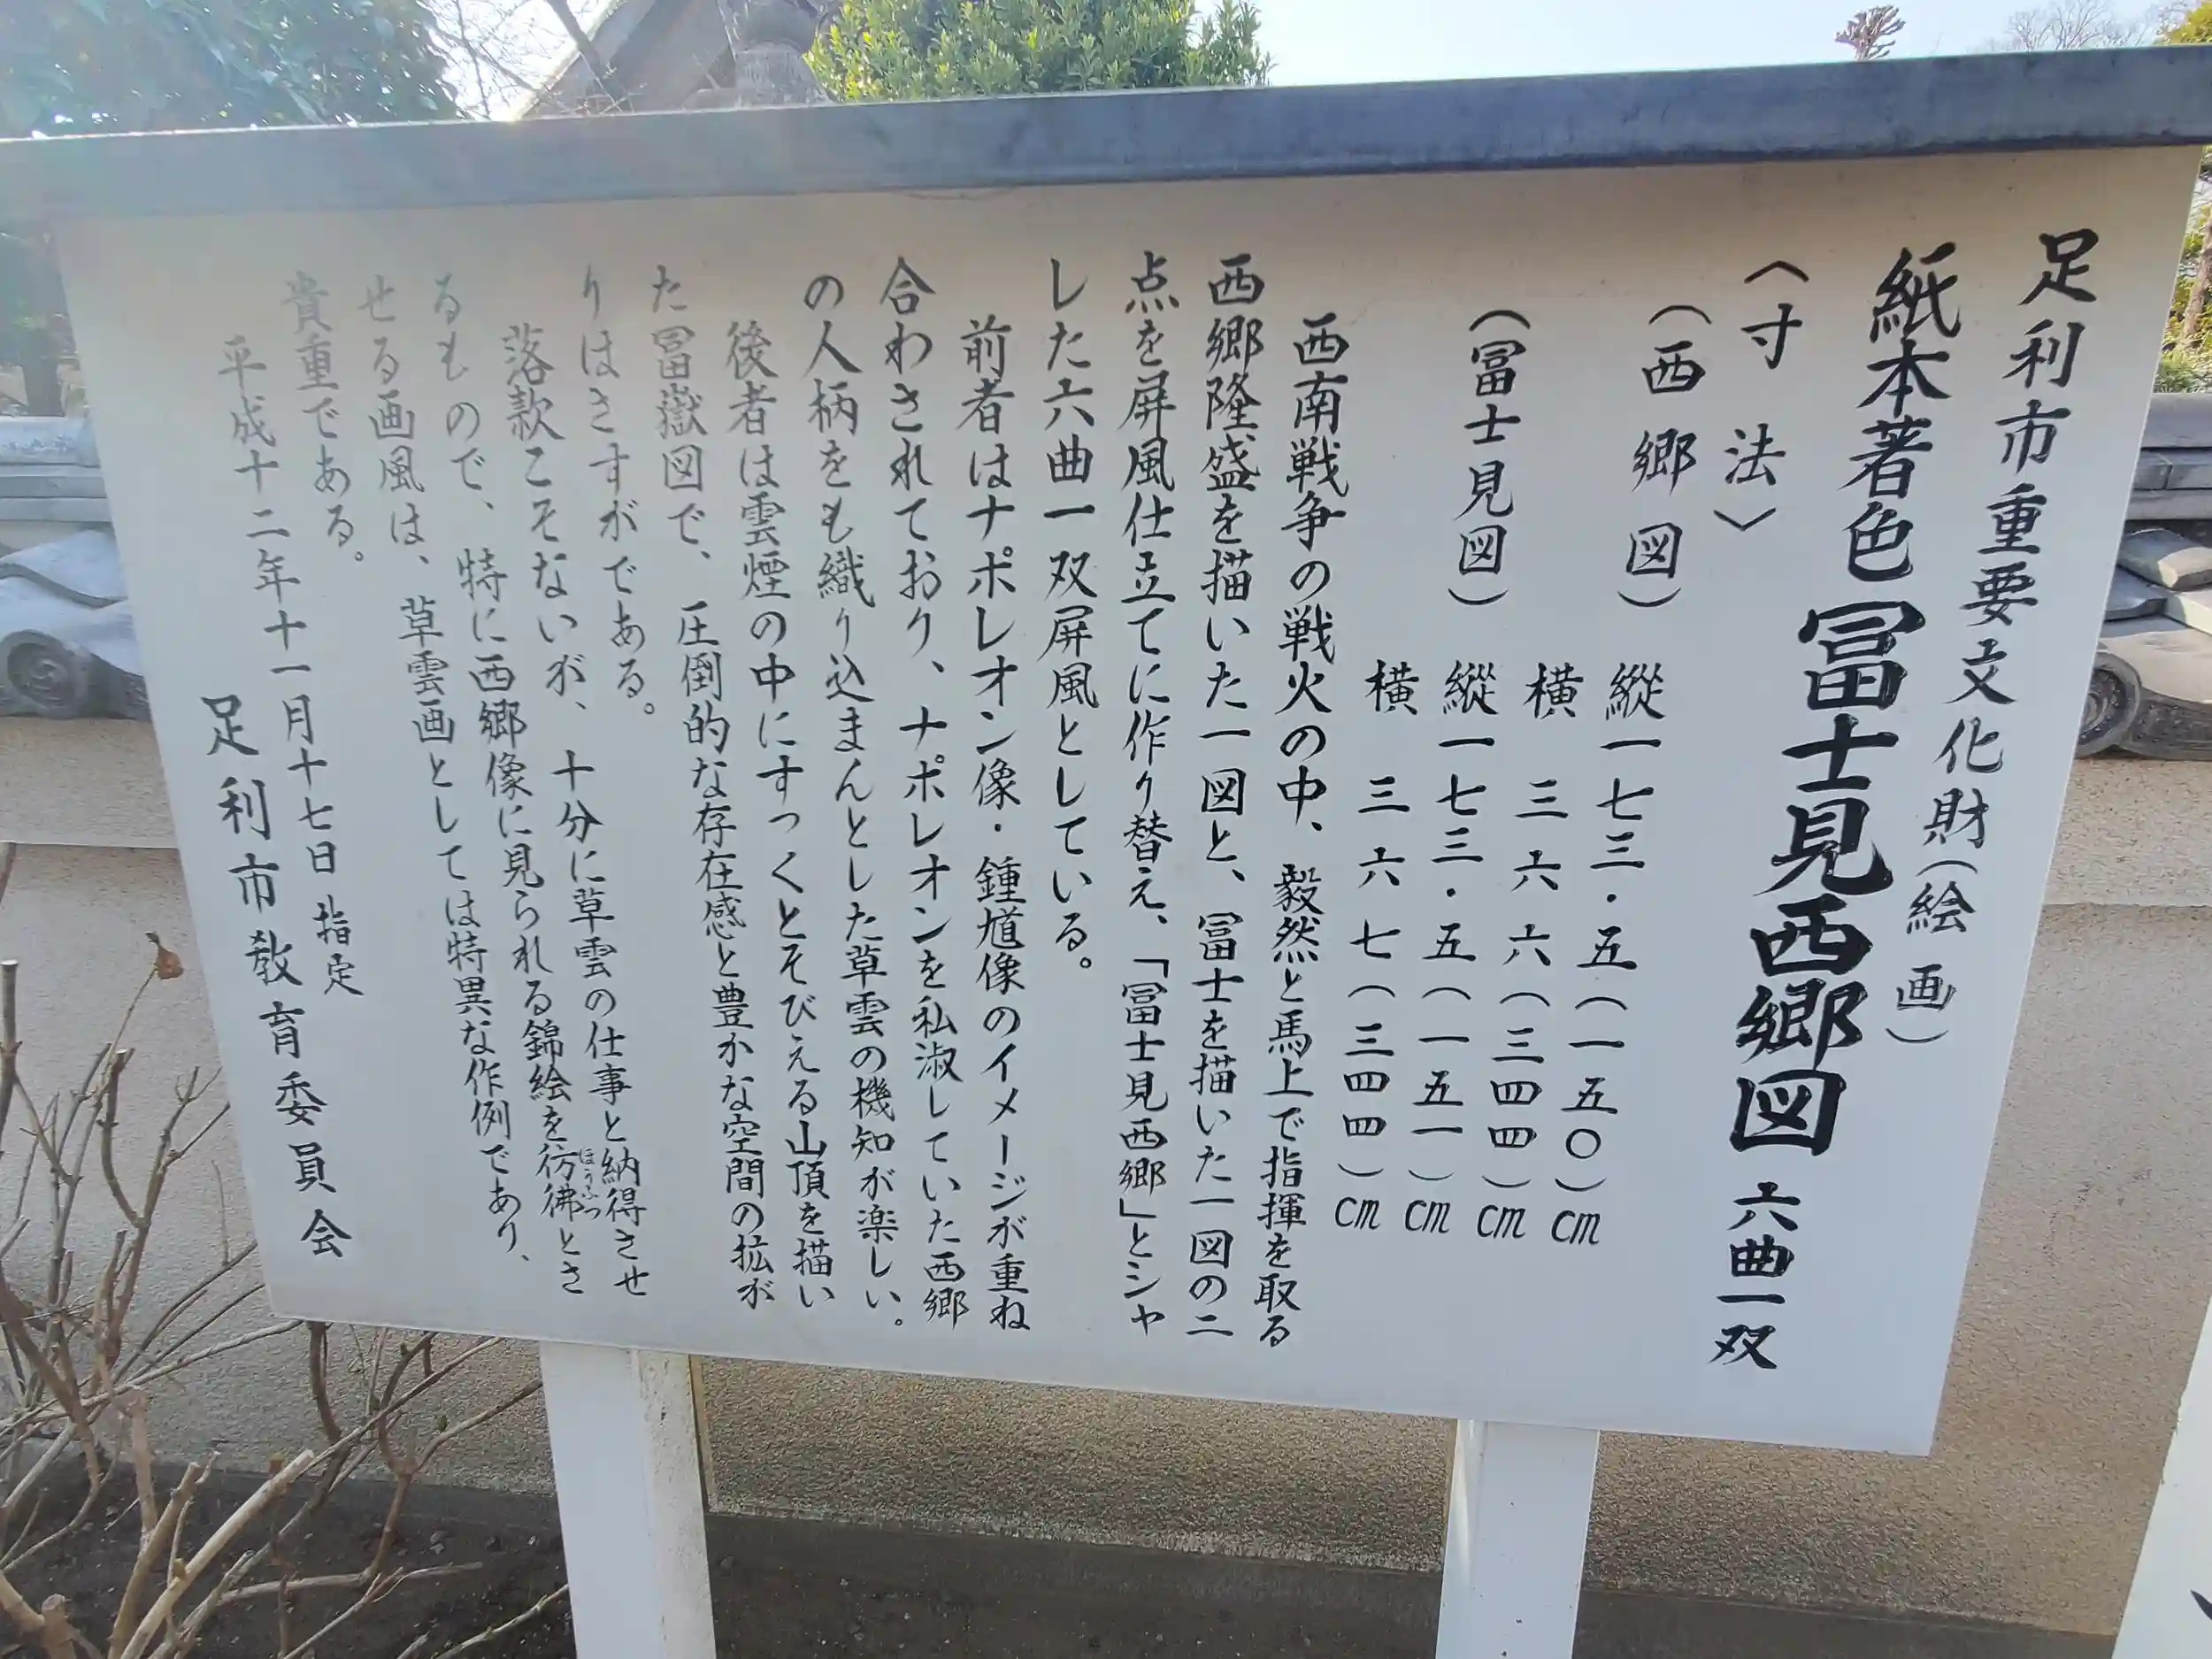 足利市重要文化財（絵画）
紙本著色冨士見西郷図 六曲一双
〈寸法〉
（西郷図） 縦一七三・五（一五〇）㎝
横 三六六（三四四）㎝
（冨士見図） 縦一七三・五（一五一）㎝
横 三六七（三四四）㎝
西南戦争の戦火の中、毅然と馬上で指揮を取る
西郷隆盛を描いた一図と、冨士を描いた一図の二
点を屏風仕立てに作り替え、「冨士見西郷」とシャ
した六曲一双屏風としている。
前者はナポレオン像・鍾馗像のイメージが重ね
合わされており、ナポレオンを私淑していた西郷
の人柄をも織り込まんとした草雲の機知が楽しい。
後者は雲煙の中にすっくとそびえる山頂を描い
た冨嶽図で、圧倒的な存在感と豊かな空間の拡が
りはさすがである。
落款こそないが、十分に草雲の仕事と納得させ
るもので、特に西郷像に見られる錦絵を彷彿とさ
ほうふつ
せる画風は、草雲画としては特異な作例であり、
貴重である。
平成十二年十一月十七日 指定
足利市教育委員会